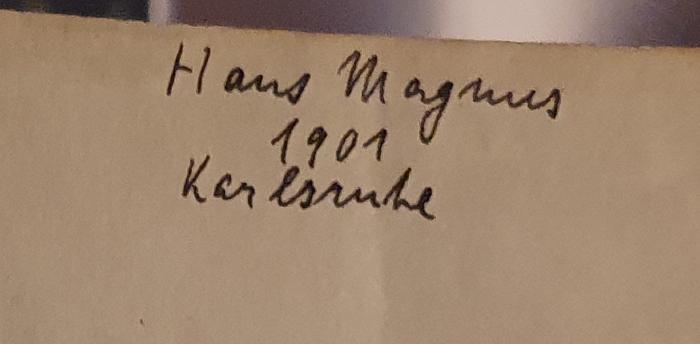 Hans Magnus
1901
Karlsruhe